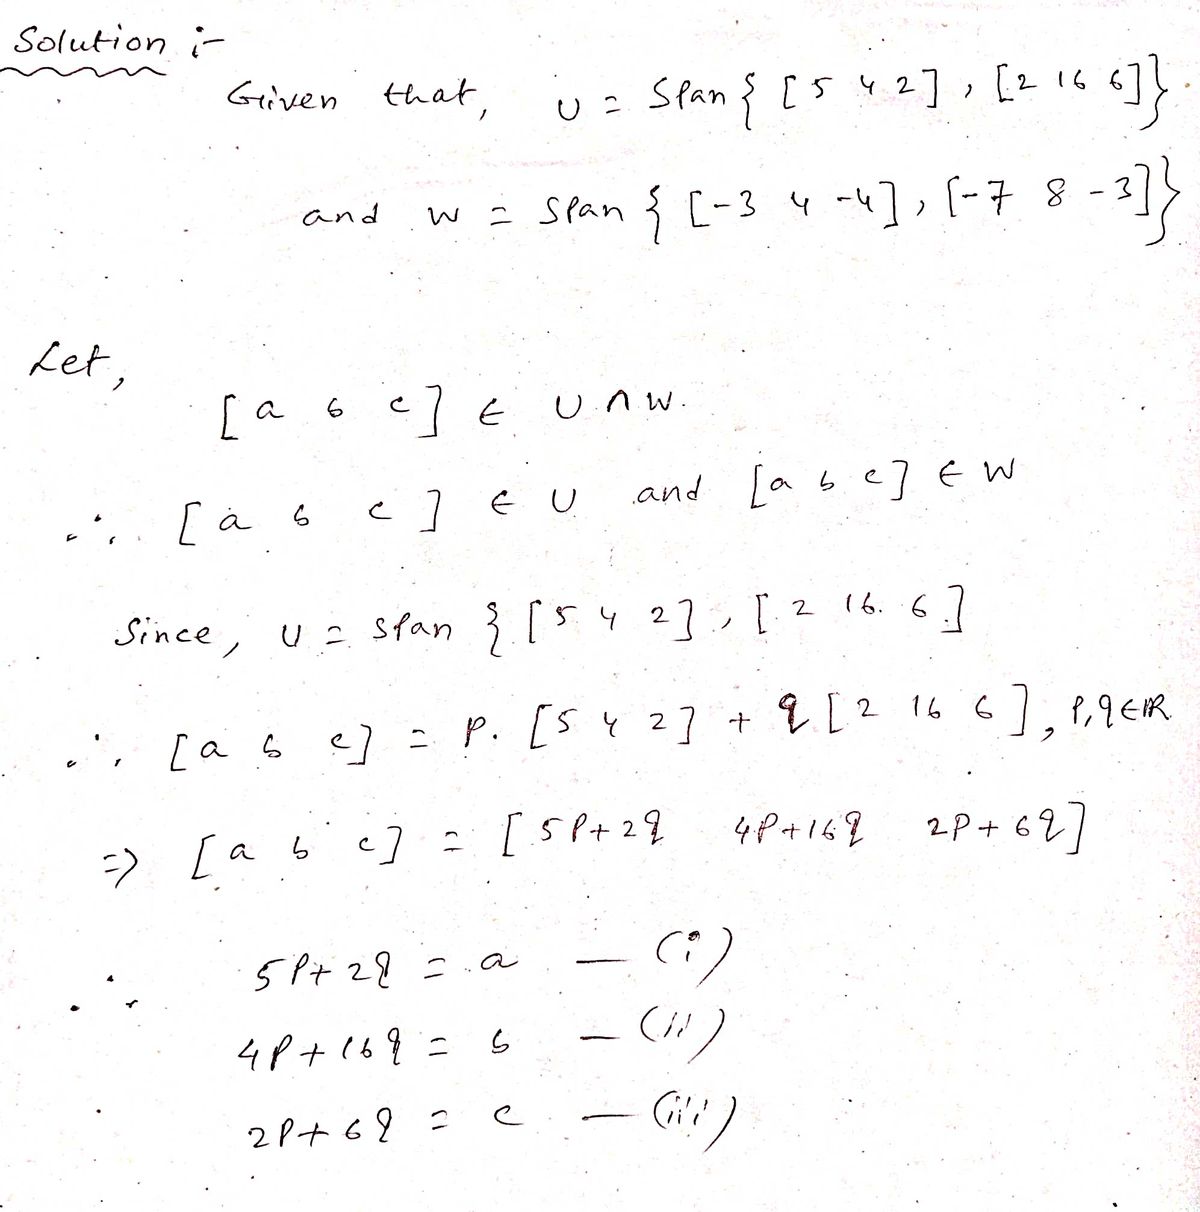 Solution :-
Given that, U = Span { [5 4 2] , [2 16 6] }
and W = Span { [-3 4 -4] , [-7 8 -3] }
Let,
[a b c] ∈ U ∩ W.
∴ [a b c] ∈ U and [a b c] ∈ W
Since, U = Span { [5 4 2] , [2 16 6]
∴ [a b c] = P. [5 4 2] + q [2 16 6] , P,q ∈ ℝ
=> [a b c] = [5P+2q 4P+16q 2P+6q]
∴ 5P+2q = a — (i)
4P+16q = b — (ii)
2P+6q = c — (iii)